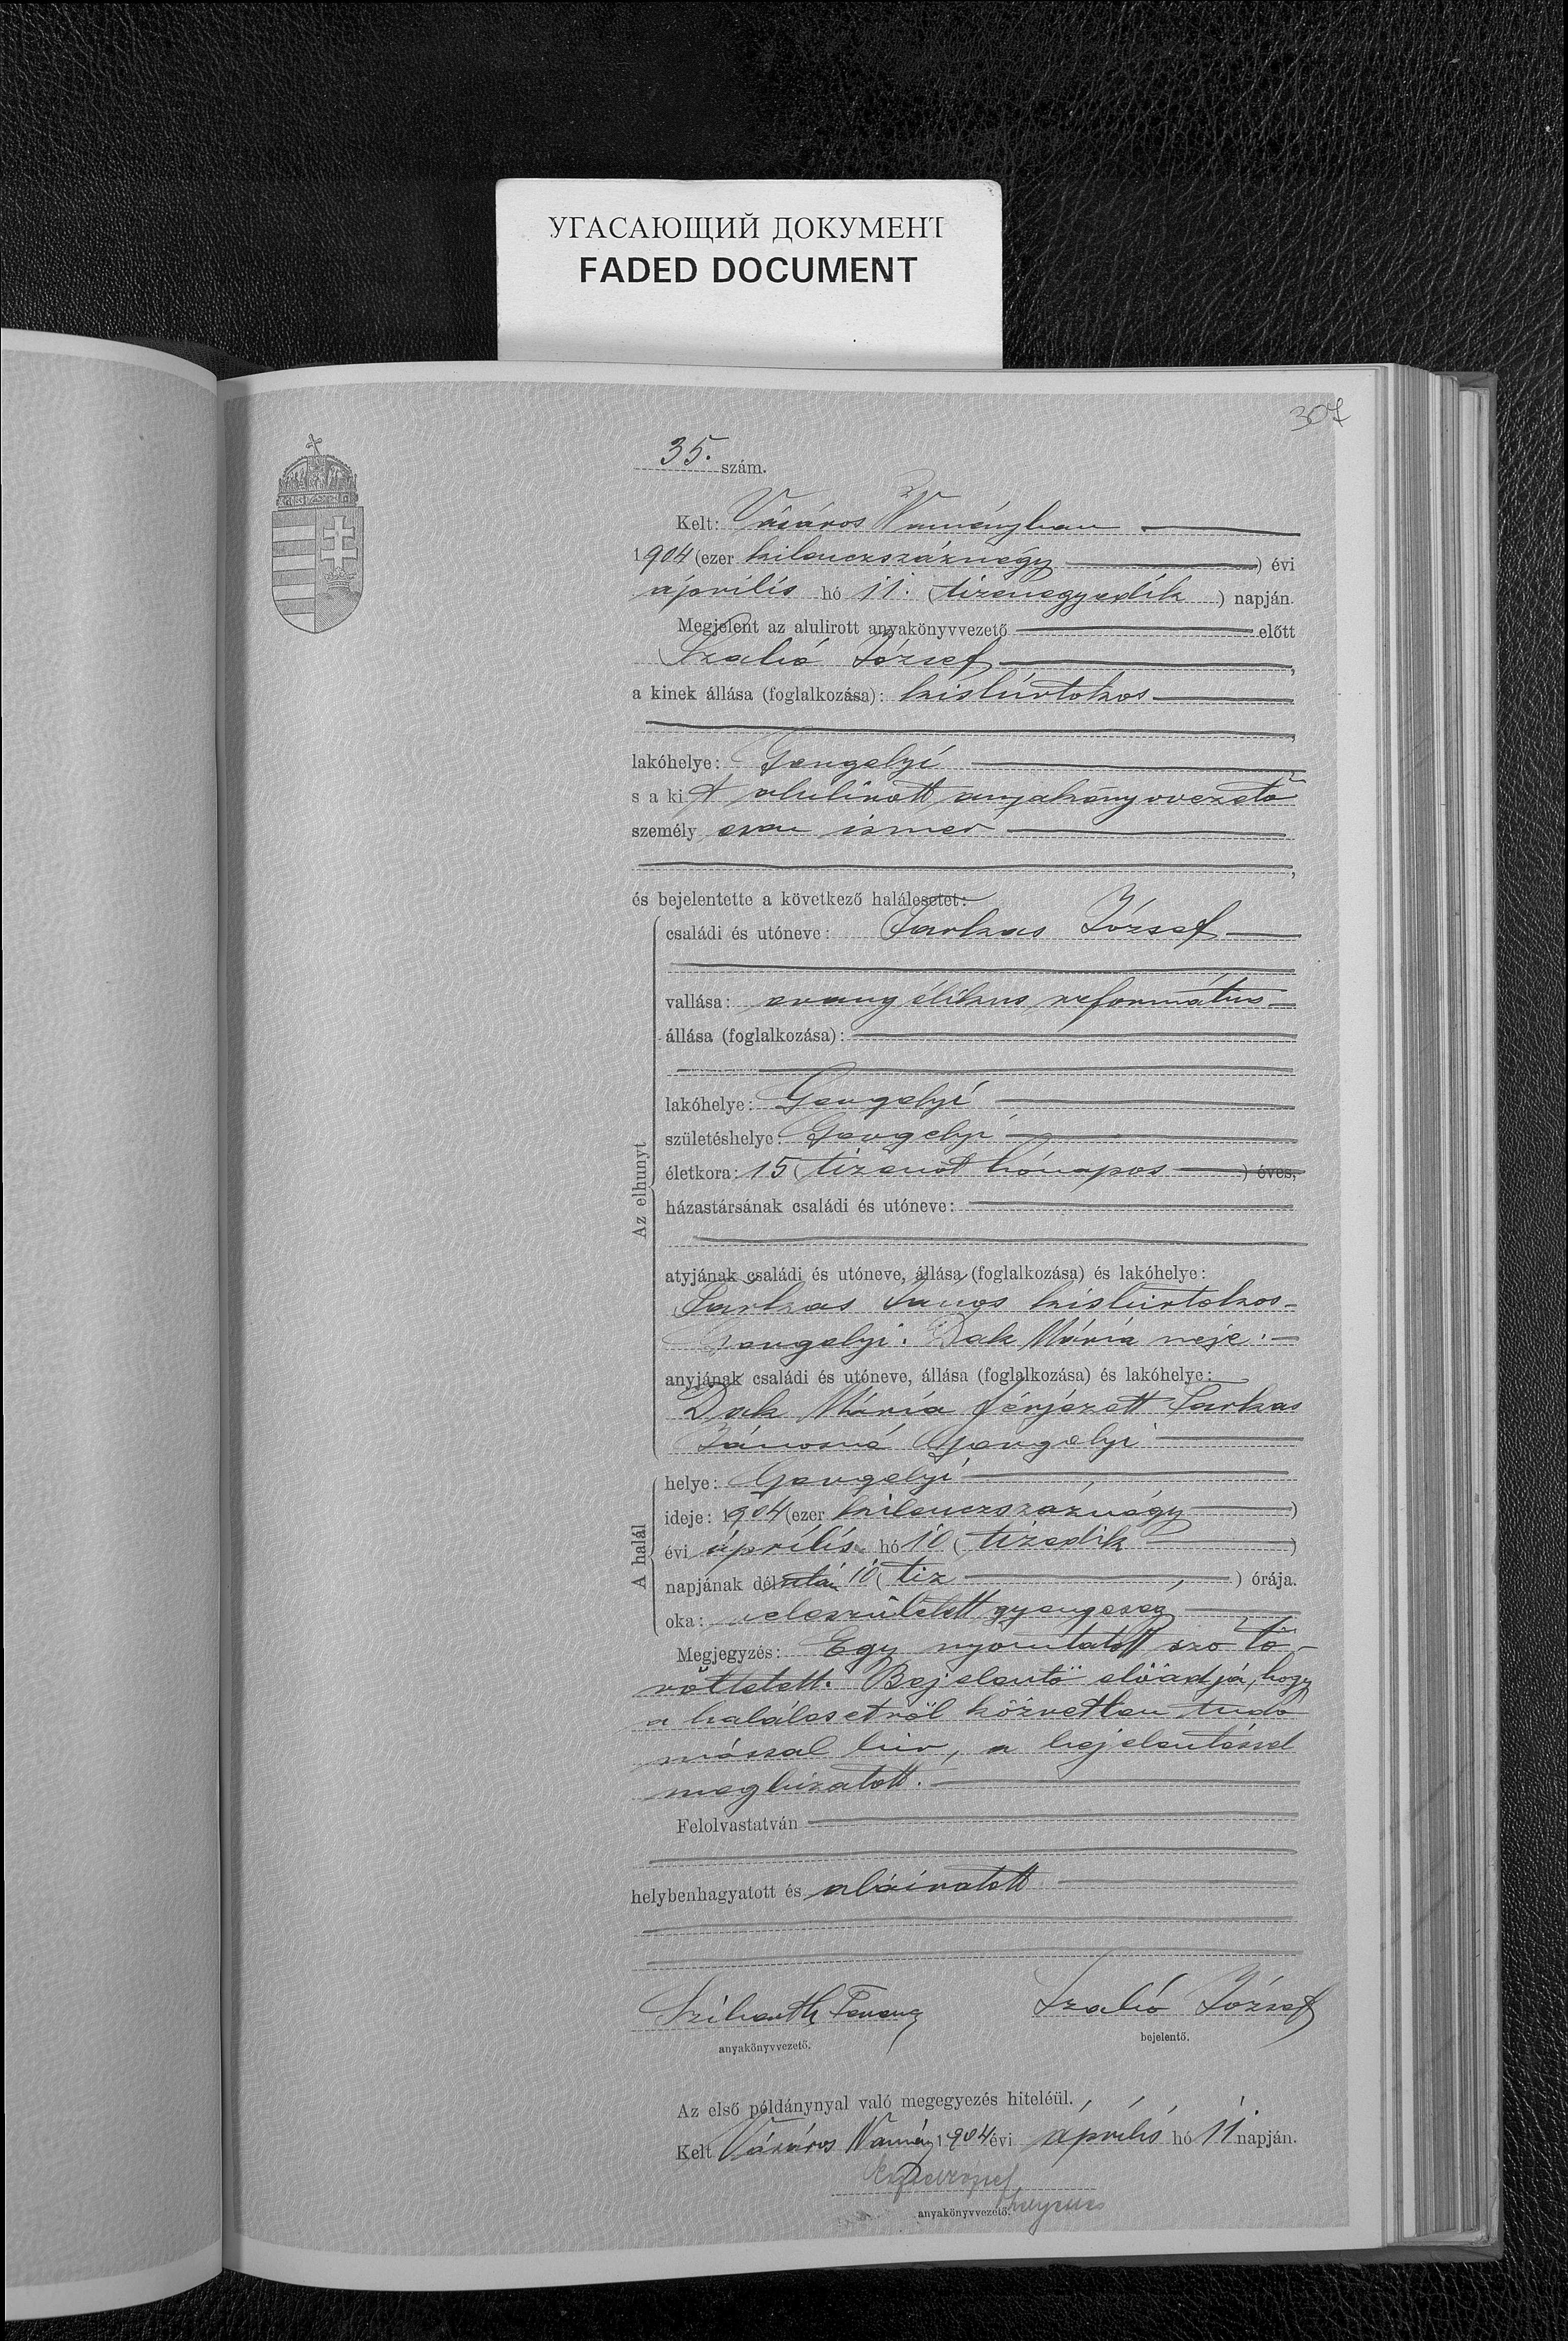 УГАСАЮЩИЙ ДОКУМЕНТ
FADED DOCUMENT
307
35. szám.
Kelt: Vásáros Naményban
1904 (ezer kilenczszáznégy) évi
április hó 11. (tizenegyedik) napján.
Megjelent az alulirott anyakönyvvezető előtt
Szabó József,
a kinek állása (foglalkozása): kisbirtokos
lakóhelye: Gergelyi
s a kit alulirott anyakönyvvezető
személyesen ismer
és bejelentette a következő halálesetet:
Az elhunyt
családi és utóneve: Farkas József
vallása: evangélikus református
állása (foglalkozása):
lakóhelye: Gergelyi
születéshelye: Gergelyi
életkora: 15 (tizenöt hónapos) éves,
házastársának családi és utóneve:
atyjának családi és utóneve, állása (foglalkozása) és lakóhelye:
Farkas János kisbirtokos
Gergelyi. Dak Mária neje.
anyjának családi és utóneve, állása (foglalkozása) és lakóhelye:
Dak Mária férjezett Farkas
Jánosné Gergelyi
A halál
helye: Gergelyi
ideje: 1904 (ezer kilenczszáznégy)
évi április hó 10 (tizedik)
napjának délután 10 (tiz) órája.
oka: veleszületett gyengeség
Megjegyzés: Egy nyomtatott szó tö-
röltetett. Bejelentö elöadja, hogy
a halálesetröl közvetlen tudo
mással bir, a bejelentéssel
megbizatott.
Felolvastatván
helybenhagyatott és aláiratott
Ferencz
Szabó József
anyakönyvvezető.
bejelentő.
Az első példánynyal való megegyezés hiteléül.
Kelt Vásáros Namény 1904 évi április hó 11 napján.
anyakönyvvezető.